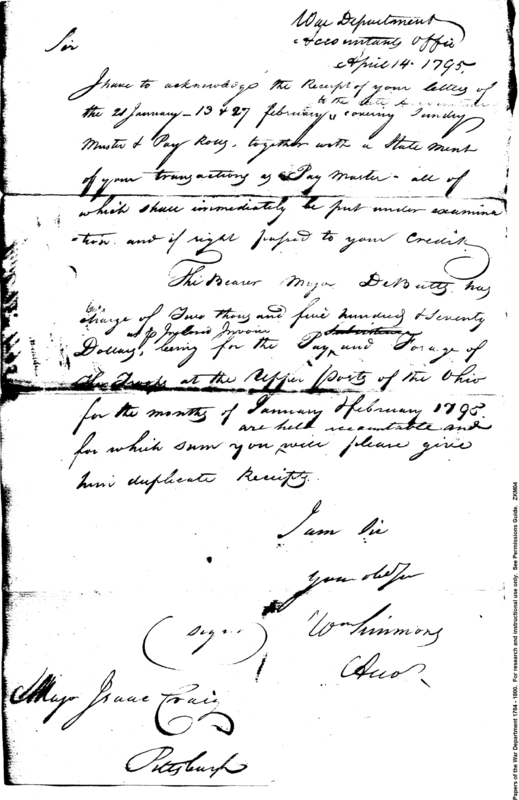 War Department
Accountants Office
April 14. 1795.
Sir
I have to acknowledge the Receipt of your letters of
to the late Accountant
the 21 January - 13 & 27 February covering Sundry
Muster & Pay Rolls, together with a State ment
of your transactions as Pay Master - all of
which shall immediately be put under examina
-tion. and if right passed to your Credit.
The Bearer Major DeButts has
charge of Two thousand five hundred & seventy
as Inclosed Invoice Subsistence
Dollars, being for the Pay and Forage of
the Troops at the Upper Posts of the Ohio
for the months of January & February 1795.
are held accountable and
for which sum you will please give
him duplicate Receipts.
I am Sir
your obed ser
(signed) Wm Simmons
Acco.
Major Isaac Craig
Pittsburgh
Papers of the War Department 1784 - 1800. For research and instructional use only. See Permissions Guide. ZXM94